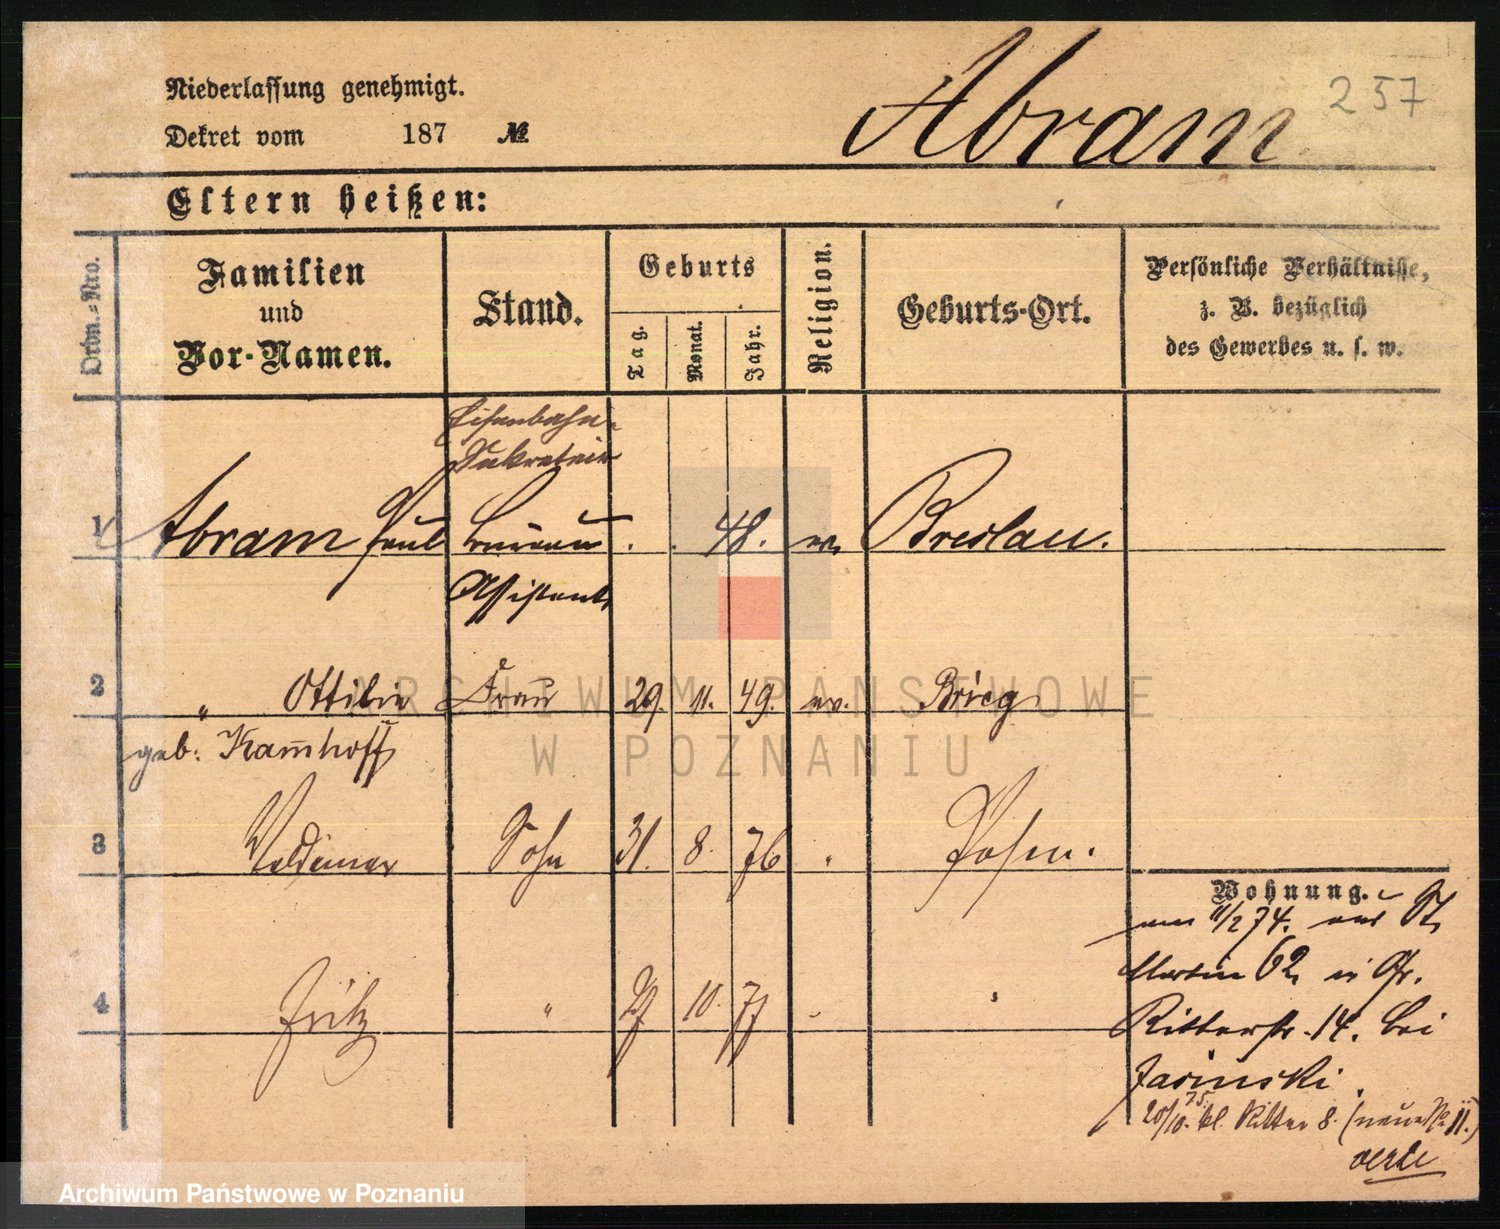 Niederlassung genehmigt.
Dekret vom 187 №
Abram
257
Eltern heißen:
Ordn.-Nro.
Familien
und
Vor-Namen.
Stand.
Geburts
Tag.
Monat.
Jahr.
Religion.
Geburts-Ort.
Persönliche Verhältnisse,
z. B. bezüglich
des Gewerbes u. s. w.
Eisenbahn-
Sekretair
1 Abram Paul Bureau 48. ev. Breslau.
Assistent
2 " Ottilie Frau 29. 11. 49. ev. Brieg
geb: Kamhoff
3 Waldemar Sohn 31. 8. 76 " Posen.
4 Fritz " 10. 77 "
Wohnung.
am 11/2 74. aus St.
Martin 62 in Gr.
Ritterstr. 14. bei
Jasinski.
20/10. 75. kl. Ritter 8. (neue № 11.)
verte
ARCHIWUM PAŃSTWOWE
W POZNANIU
Archiwum Państwowe w Poznaniu